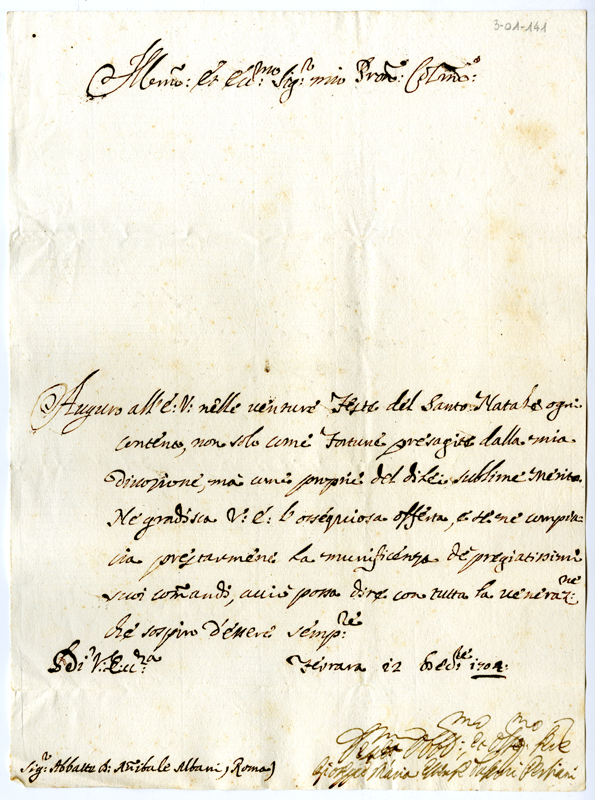 3-01-141
Illmo: Et Ecc:mo Sig:r mio Pron: Colmo:
Auguro all'E: V: nelle venture Feste del Santo Natale ogni
contento, non solo come Fortune presagite dalla mia
divozione, ma come proprie del di lei sublime Merito.
Ne gradisca V: E: l'ossequiosa offerta, e se ne compia-
cia prestarmene la munificenza de pregiatissimi
suoi comandi, acciò possa dire con tutta la veneraz:ne
che sospiro d'essere semp:re
Di V: Ecc:za Ferrara 12 Xbre 1704.
Obbl:mo
Sig:r Abbatte D: Anibale Albani, Roma)
Maria